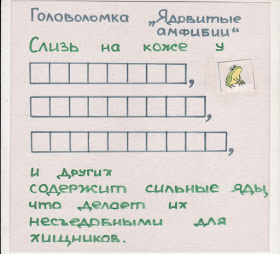 Головоломка „Ядовитые
амфибии"
Слизь на коже у
,
,
,
и других
содержит сильные яды,
что делает их
несъедобными для
хищников.